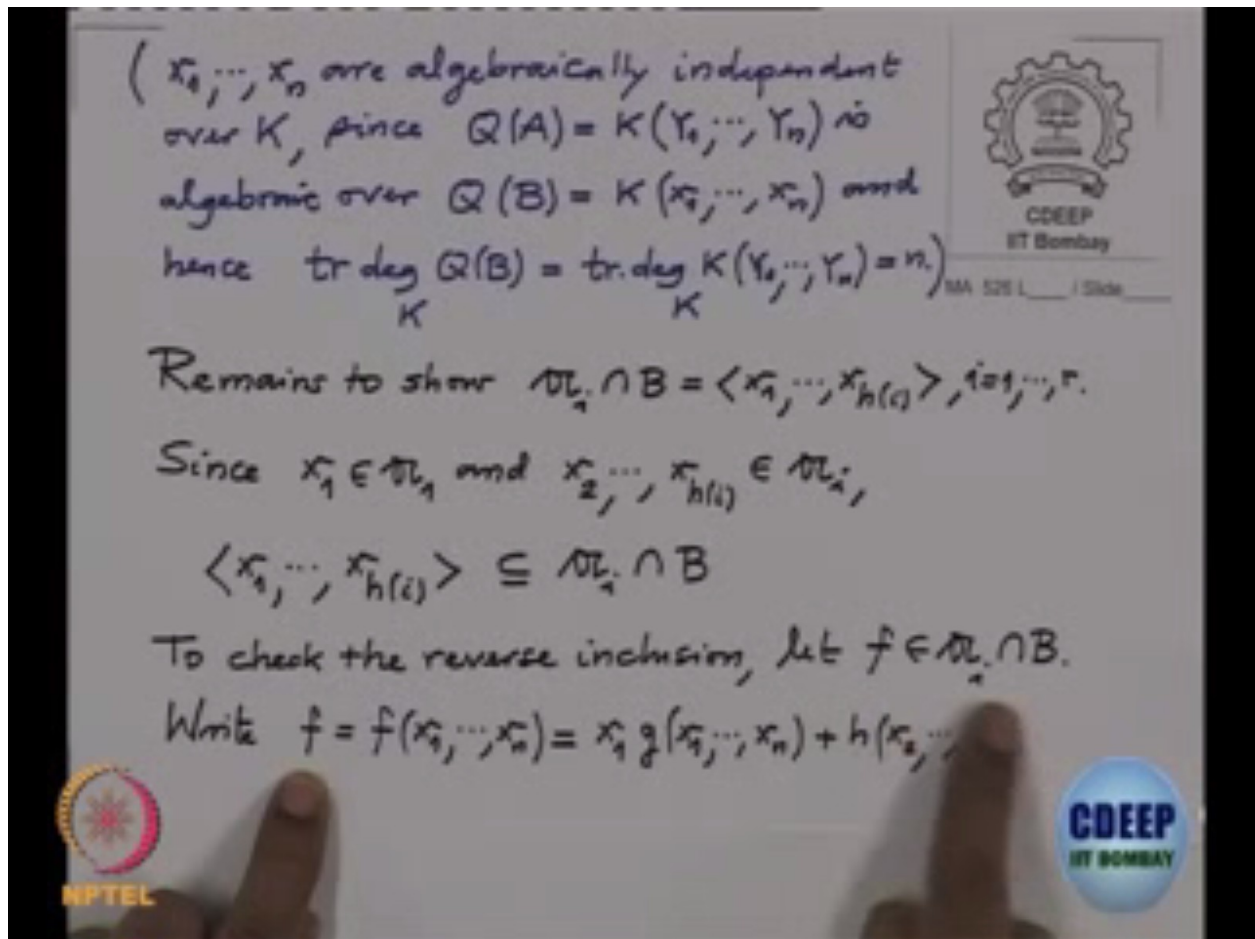 ( x₁, ⋯, xₙ are algebraically independent
over K, since Q(A) = K(Y₁, ⋯, Yₙ) is
algebraic over Q(B) = K(x₁, ⋯, xₙ) and
hence tr deg Q(B) = tr. deg K(Y₁, ⋯, Yₙ) = n. )
K K
CDEEP
IIT Bombay
MA 526 L___ / Slide___
Remains to show 𝔄ᵢ ∩ B = <x₁, ⋯, x_h(i)>, i=1, ⋯, r.
Since x₁ ∈ 𝔄₁ and x₂, ⋯, x_h(i) ∈ 𝔄ᵢ,
<x₁, ⋯, x_h(i)> ⊆ 𝔄ᵢ ∩ B
To check the reverse inclusion, let f ∈ 𝔄ᵢ ∩ B.
Write f = f(x₁, ⋯, xₙ) = x₁ g(x₁, ⋯, xₙ) + h(x₂, ⋯,
NPTEL
CDEEP
IIT BOMBAY